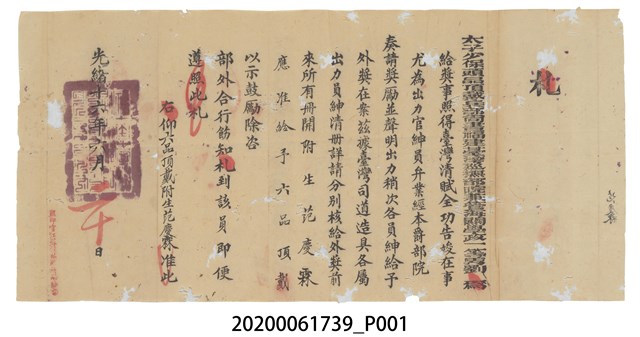 札
給獎事照得臺灣清賦全功告竣在事
尤為出力官紳員弁業經本爵部院
奏請獎勵並聲明出力稍次各員紳給予
外獎在案茲據臺灣司道造具各屬
出力員紳清冊詳請分別核給外獎前
來所有冊開附生范慶霖
應准給予六品頂戴
以示鼓勵除咨
部外合行飭知札到該員即便
遵照此札
右仰六品頂戴附生范慶霖准此
光緒十六年六月二十日
20200061739_P001